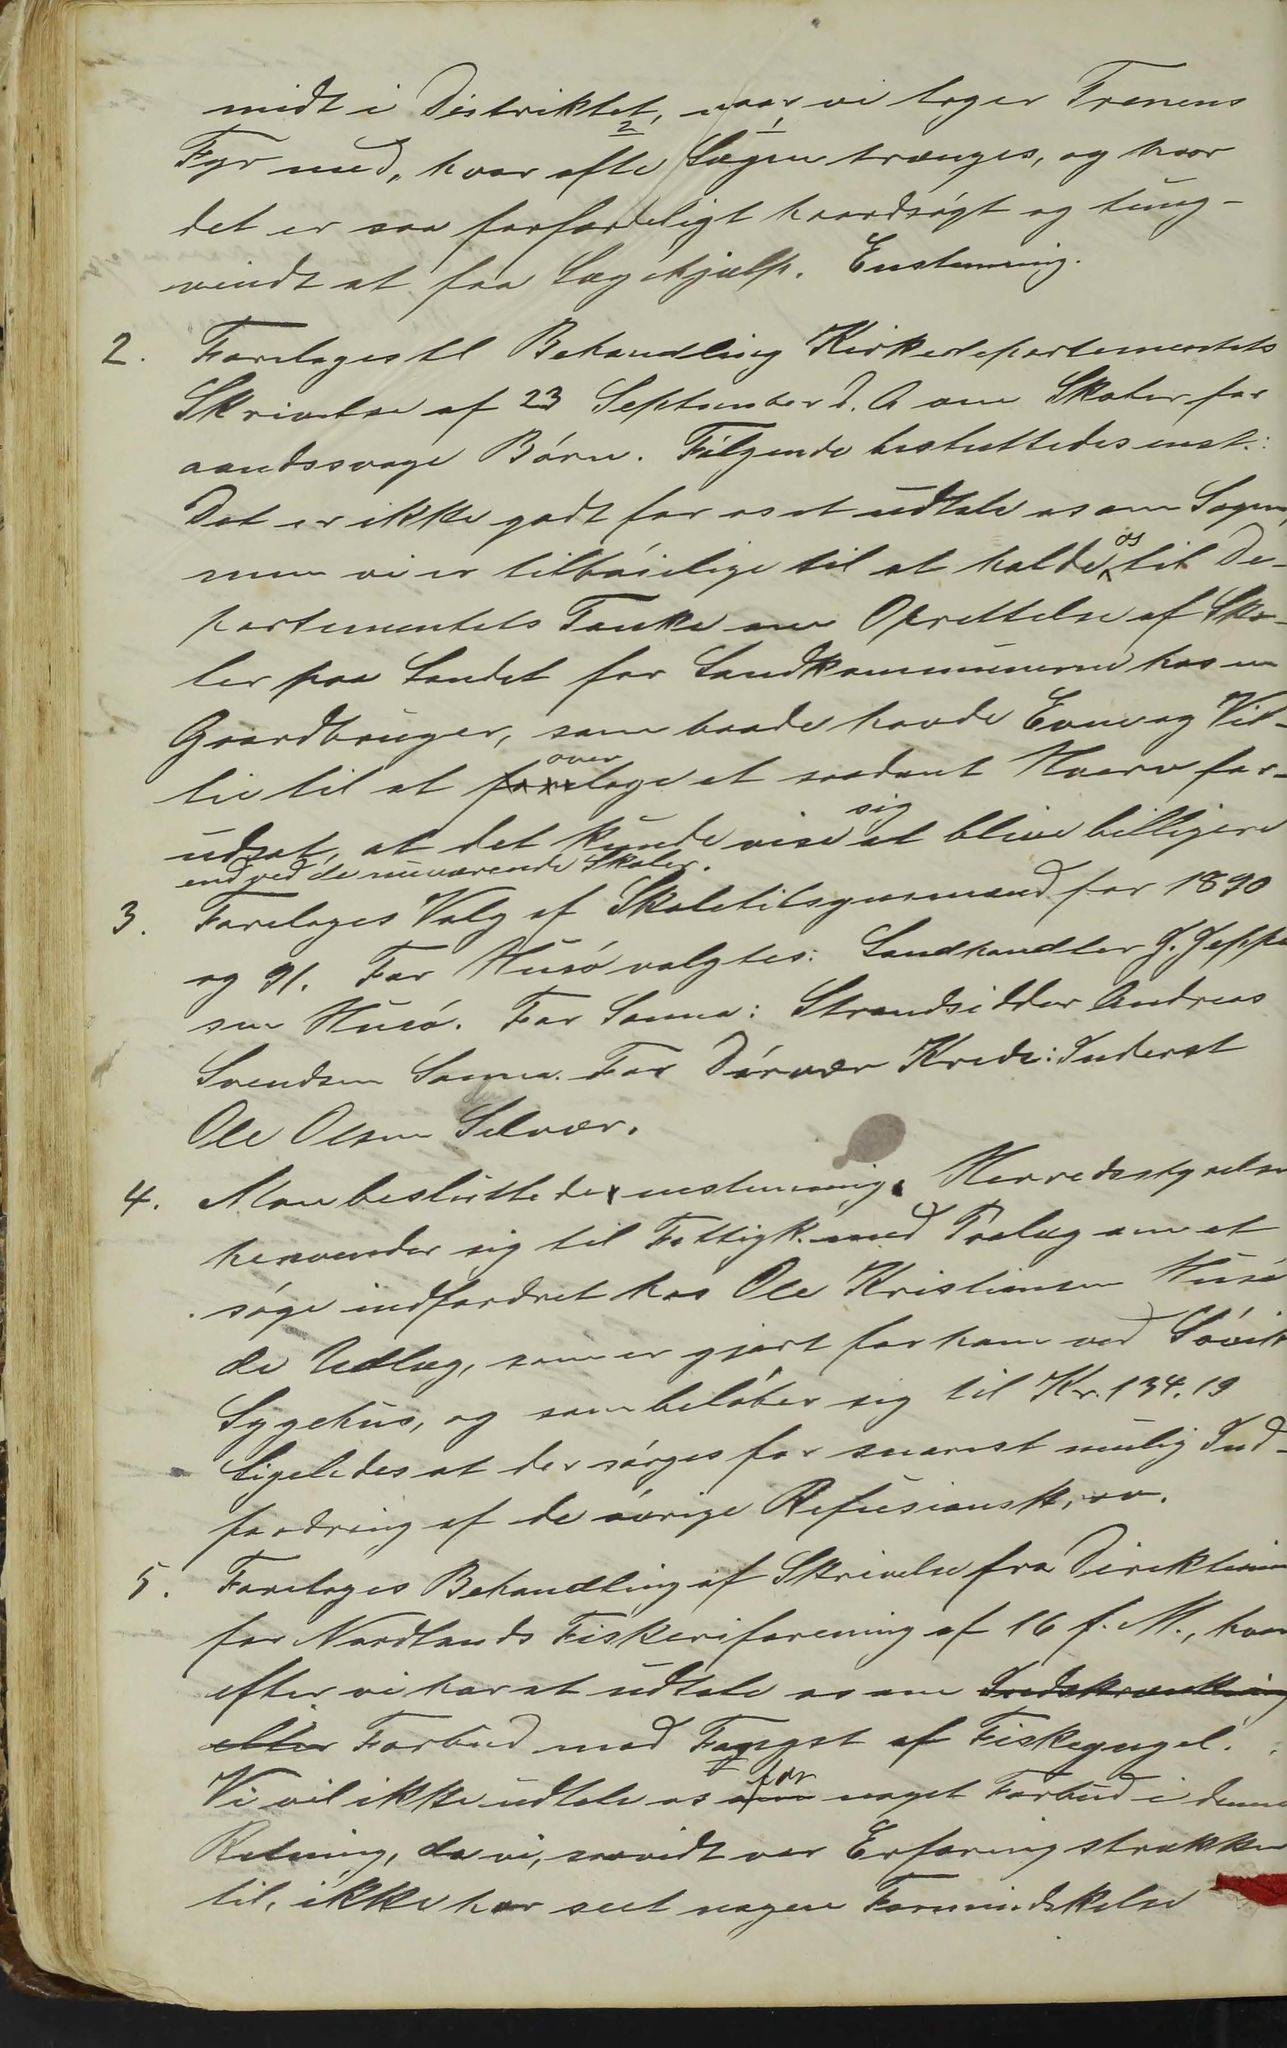 midt i Distriktet, naar vi tager Trænens
Fyr med, hvor ofte Lægen trænges, og hvor
det er saa forfærdeligt haardsøgt og tung-
vindt at faa Lægehjælp. Enstemmig.
2. Foretoges til Behandling Kirkedepartementets
Skrivelse af 23 September d. A om Skoler for
aandssvage Børn. Følgende besluttedes enst.:
Det er ikke godt for os at udtale os om Sagen,
men vi er tilbøielige til at holde os til De-
partementets Tanke om Oprettelse af Sko-
ler paa Landet for Landkommunerne hos en
Gaardbruger, som baade havde Evne og Vil-
lie til at overtage et saadant Hverv for-
udsat, at det kunde vise sig at blive billigere
end ved de nuværende Skoler.
3. Foretoges Valg af Skoletilsynsmænd for 1890
og 91. For Husø valgtes: Landhandler J. Jeppe
sen Husø. For Sanna: Strandsidder Andreas
Svendsen Sanna. For Dørvær Kreds: Inderst
Ole Olsen Selvær.
4. Man besluttede enstemmig. Herredsstyrelsen
henvender sig til Fattigk. med Forslag om at
søge indfordret hos Ole Kristiansen Husø
de Udlæg, som er gjort for ham ved Søvik
Sygehus, og som beløber sig til Kr. 134.19
Ligeledes at der sørges for snarest mulig Ind-
fordring af de øvrige Refusionskrav.
5. Foretoges Behandling af Skrivelse fra Direktionen
for Nordlands Fiskeriforening af 16 f. M., hvor
efter vi har at udtale os om Indskrænkning
eller Forbud mod Fangst af Fiskeyngel.
Vi vil ikke udtale os for noget Forbud i denne
Retning, da vi, saavidt vor Erfaring strækker
til, ikke har seet nogen Formindskelse